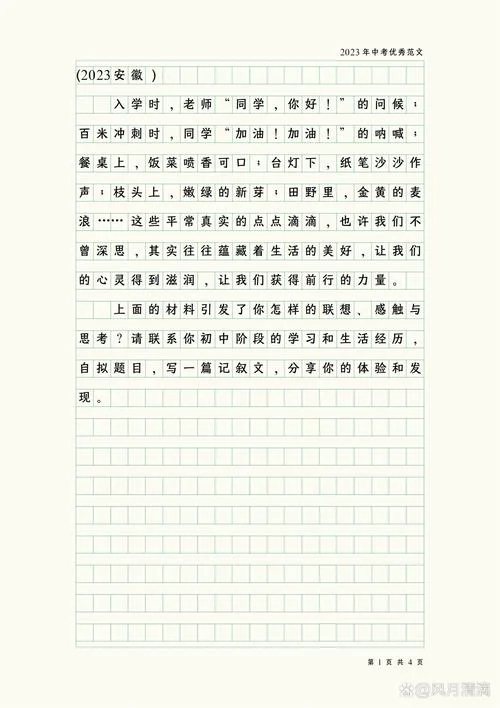 2023年中考优秀范文
(2023安徽)
入学时，老师“同学，你好！”的问候；
百米冲刺时，同学“加油！加油！”的呐喊；
餐桌上，饭菜喷香可口；台灯下，纸笔沙沙作
声；枝头上，嫩绿的新芽；田野里，金黄的麦
浪……这些平常真实的点点滴滴，也许我们不
曾深思，其实往往蕴藏着生活的美好，让我们
的心灵得到滋润，让我们获得前行的力量。
上面的材料引发了你怎样的联想、感触与
思考？请联系你初中阶段的学习和生活经历，
自拟题目，写一篇记叙文，分享你的体验和发
现。
第 1 页 共 4 页
@风月清满